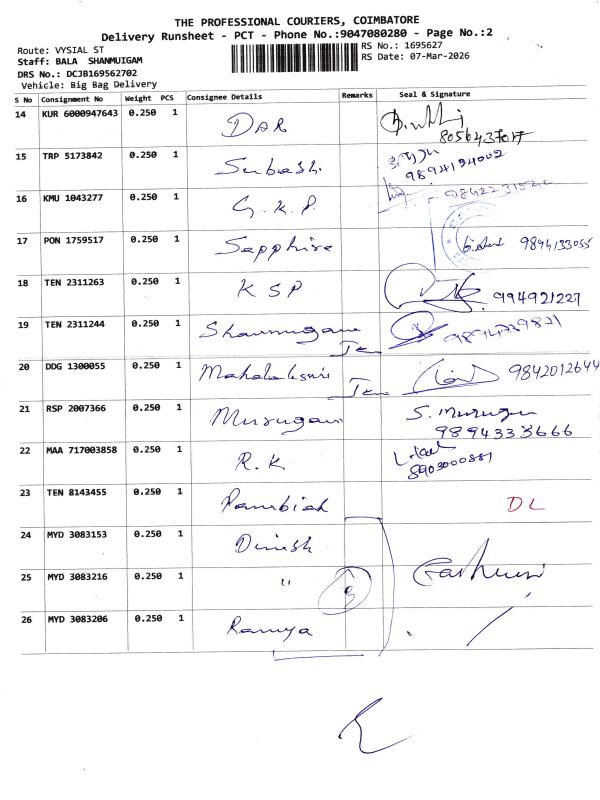 THE PROFESSIONAL COURIERS, COIMBATORE
Delivery Runsheet - PCT - Phone No.:9047080280 - Page No.:2
Route: VYSIAL ST
Staff: BALA SHANMUIGAM
DRS No.: DCJB169562702
Vehicle: Big Bag Delivery
RS No.: 1695627
RS Date: 07-Mar-2026
S No Consignment No Weight PCS Consignee Details Remarks Seal & Signature
14 KUR 6000947643 0.250 1 DAR
8056437017
15 TRP 5173842 0.250 1 Subash
9894194002
16 KMU 1043277 0.250 1 G.K.P.
17 PON 1759517 0.250 1 Sapphire 9894133055
18 TEN 2311263 0.250 1 KSP 994921227
19 TEN 2311244 0.250 1 Shanmugam
20 DDG 1300055 0.250 1 Mahalaksmi 9842012644
21 RSP 2007366 0.250 1 Murugan S. Murugan
9894333666
22 MAA 717003858 0.250 1 R.K
8903000881
23 TEN 8143455 0.250 1 DL
24 MYD 3083153 0.250 1 Dinesh
25 MYD 3083216 0.250 1 "
26 MYD 3083206 0.250 1 Ramya